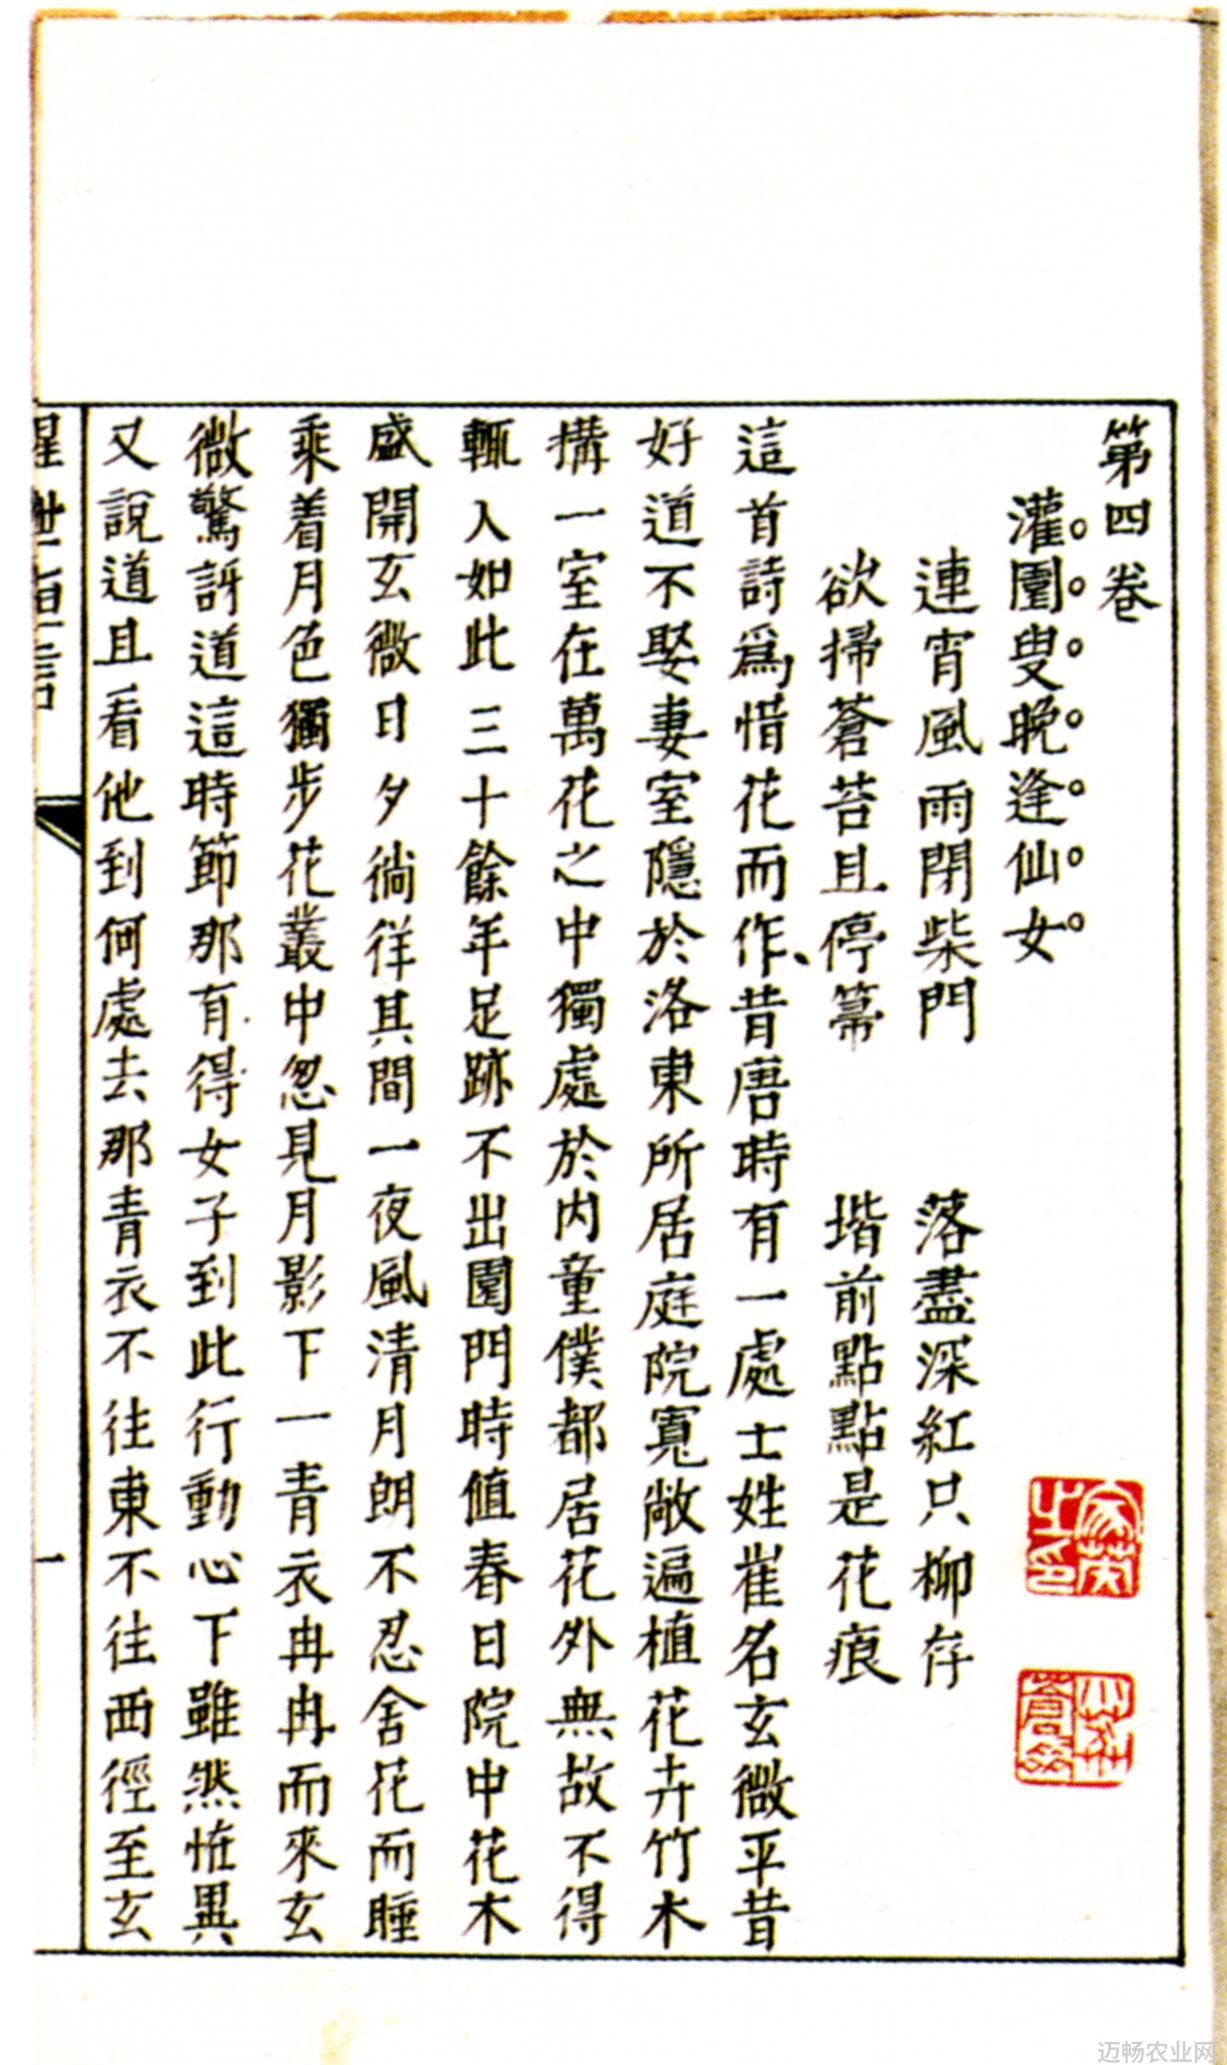 第四卷
灌園叟晚逢仙女
連宵風雨閉柴門　落盡深紅只柳存
欲掃蒼苔且停箒　堦前點點是花痕
這首詩爲惜花而作、昔唐時有一處士姓崔名玄微平昔
好道不娶妻室隱於洛東所居庭院寬敞遍植花卉竹木
搆一室在萬花之中獨處於内童僕都居花外無故不得
輒入如此三十餘年足跡不出園門時値春日院中花木
盛開玄微日夕徜徉其間一夜風清月朗不忍舍花而睡
乘着月色獨步花叢中忽見月影下一青衣冉冉而來玄
微驚訝道這時節那有得女子到此行動心下雖然恠異
又說道且看他到何處去那青衣不往東不往西徑至玄
醒世恒言
一
迈畅农业网